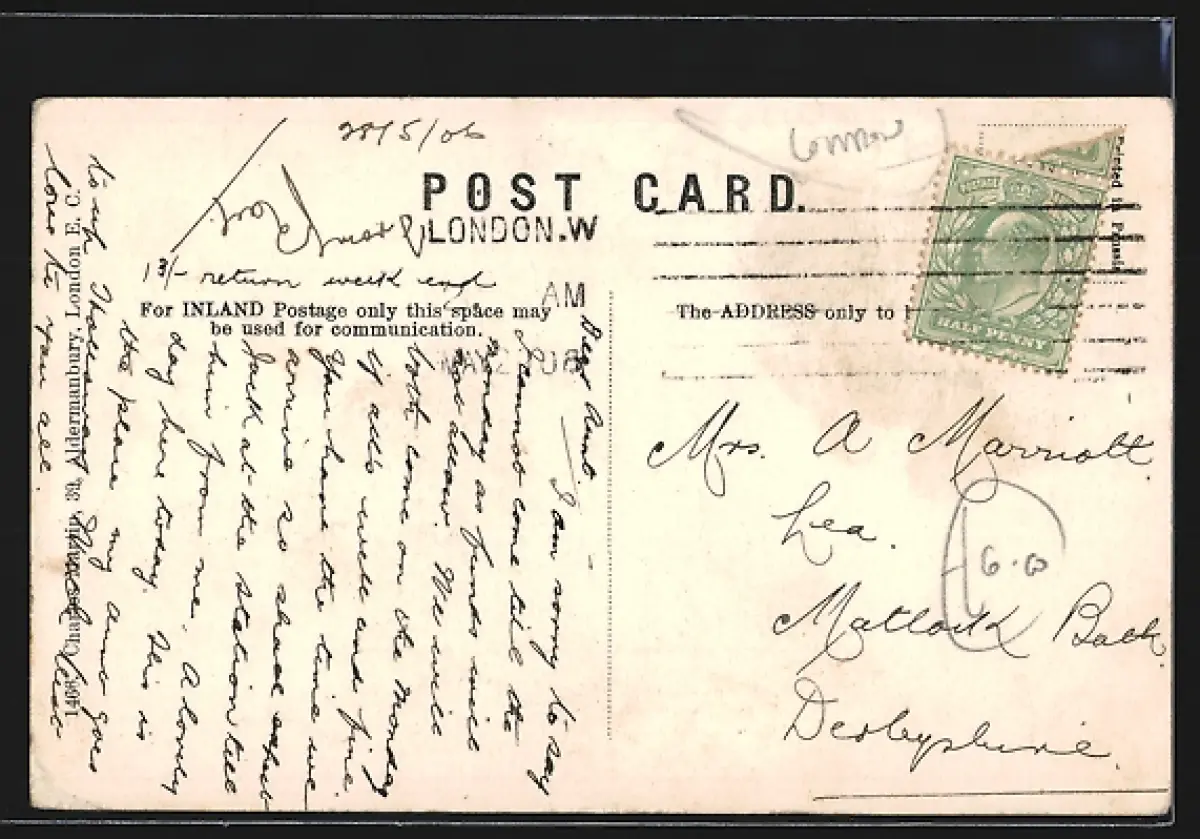 28/5/06
London
POST CARD.
LONDON.W
AM
13/- return week end
For INLAND Postage only this space may
be used for communication.
The ADDRESS only to
Printed in
HALF PENNY
Dear Aunt. I am sorry to say
I cannot come till the
Monday as funds will
not allow. We will
both come on the Monday
if all's well and fine.
You have the time we
arrive so shall expect
Jack at the station till
hear from me. A lovely
day here today. This is
the place my aunt goes
to
love to you all.
1468 Aldermanbury, London E. C.
Mrs. A Marriott
Lea.
Matlock Bath.
Derbyshire.
6.0